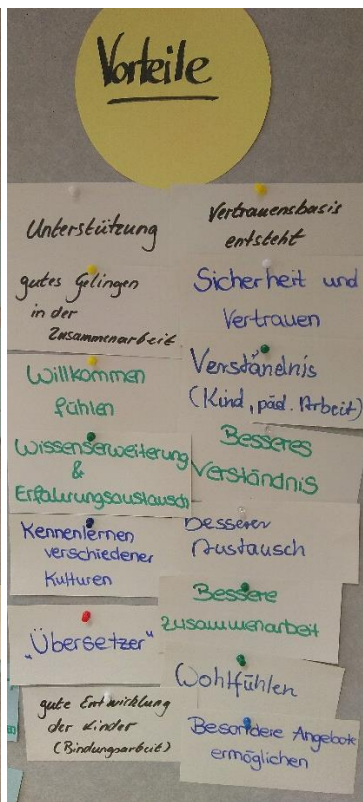 Vorteile
Unterstützung
gutes Gelingen
in der
Zusammenarbeit
Willkommen
fühlen
Wissenserweiterung
&
Erfahrungsaustausch
Kennenlernen
verschiedener
Kulturen
„Übersetzer"
gute Entwicklung
der Kinder
(Bindungsarbeit)
Vertrauensbasis
entsteht
Sicherheit und
Vertrauen
Verständnis
(Kind, päd. Arbeit)
Besseres
Verständnis
Besserer
Austausch
Bessere
Zusammenarbeit
Wohlfühlen
Besondere Angebote
ermöglichen